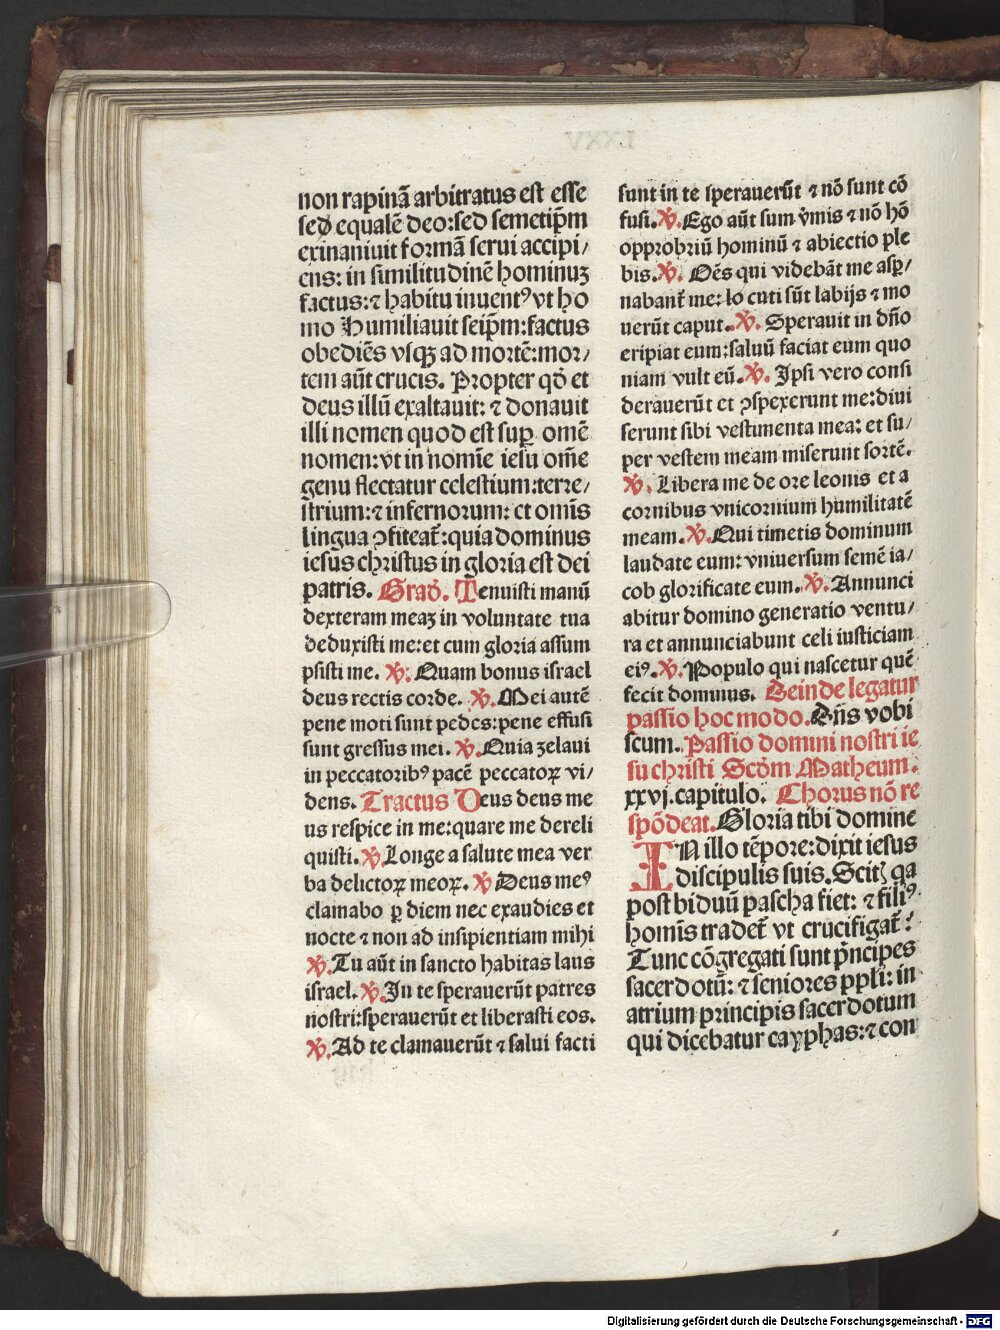 non rapinā arbitratus est esse
sed equalē deo: sed semetip̄m
exinaniuit formā serui accipi/
ens: in similitudinē hominuꝫ
factus: ⁊ habitu inuentꝰ vt ho
mo Humiliauit seip̄m: factus
obediēs vsqꝫ ad mortē: mor/
tem aūt crucis. Propter qđ et
deus illū exaltauit: ⁊ donauit
illi nomen quod est suꝑ omē
nomen: vt in nomīe iesu om̄e
genu flectatur celestium: terre/
strium: ⁊ infernorum: et omīs
lingua ꝯfiteat̄: quia dominus
iesus christus in gloria est dei
patris. Grad̄. Tenuisti manū
dexteram meaꝫ in voluntate tua
deduxisti me: et cum gloria assum
psisti me. ℣. Quam bonus israel
deus rectis corde. ℣. Mei autē
pene moti sunt pedes: pene effusi
sunt gressus mei. ℣. Quia zelaui
in peccatoribꝰ pacē peccatoꝝ vi/
dens. Tractus Deus deus me
us respice in me: quare me dereli
quisti. ℣. Longe a salute mea ver
ba delictoꝝ meoꝝ. ℣ Deus meꝰ
clamabo ꝑ diem nec exaudies et
nocte ⁊ non ad insipientiam mihi
℣. Tu aūt in sancto habitas laus
israel. ℣. In te sperauerūt patres
nostri: sperauerūt et liberasti eos.
℣. Ad te clamauerūt ⁊ salui facti
sunt in te sperauerūt ⁊ nō sunt cō
fusi. ℣. Ego aūt sum v̄mis ⁊ nō hō
opprobriū hominū ⁊ abiectio ple
bis. ℣. Oēs qui videbāt me asꝑ/
nabant̄ me: locuti sūt labijs ⁊ mo
uerūt caput. ℣. Sperauit in dn̄o
eripiat eum: saluū faciat eum quo
niam vult eū. ℣. Ipsi vero consi
derauerūt et ꝯspexerunt me: diui
serunt sibi vestimenta mea: et su/
per vestem meam miserunt sortē.
℣. Libera me de ore leonis et a
cornibus vnicornium humilitatē
meam. ℣. Qui timetis dominum
laudate eum: vniuersum semē ia/
cob glorificate eum. ℣. Annunci
abitur domino generatio ventu/
ra et annunciabunt celi iusticiam
eiꝰ. ℣. Populo qui nascetur quē
fecit dominus. Deinde legatur
passio hoc modo. Dn̄s vobi
scum. Passio domini nostri ie
su christi Scđm Matheum.
xxvj. capitulo. Chorus nō re
spōdeat. Gloria tibi domine
IN illo tēpore: dixit iesus
discipulis suis. Scitꝭ qa
post biduū pascha fiet: ⁊ filiꝰ
homīs tradet̄ vt crucifigat̄:
Tunc cōgregati sunt p̄ncipes
sacerdotū: ⁊ seniores ppli: in
atrium principis sacerdotum
qui dicebatur cayphas: ⁊ con
Digitalisierung gefördert durch die Deutsche Forschungsgemeinschaft - DFG